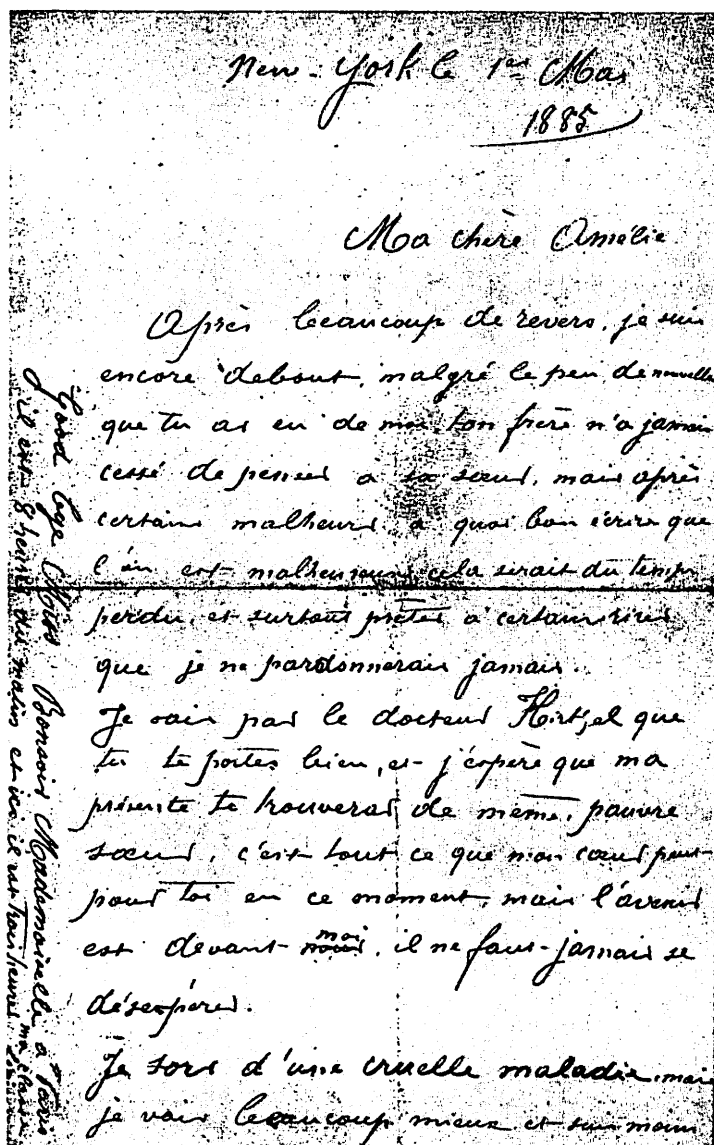 New-York le 1er Mars
1885
Ma chère Amélie
Après beaucoup de revers, je suis
encore debout, malgré le peu de nouvelle
que tu as eu de moi, ton frère n'a jamais
cessé de penser à sa sœur, mais après
certains malheurs, a quoi bon écrire que
l'on est malheureux, cela serait du temps
perdu, et surtout prêter à certains rires
que je ne pardonnerais jamais.
Je sais par le docteur que
tu te portes bien, et j'espère que ma
présente te trouveras de même, pauvre
sœur, c'est tout ce que mon cœur peut
pour toi en ce moment, mais l'avenir
est devant moi, il ne faut jamais se
désespérer.
Je sors d'une cruelle maladie, mais
je vais beaucoup mieux et suis moins
Good bye Bonsoir Mademoiselle a Paris
il est 8 heures du matin et ici il est trois heures ma chère